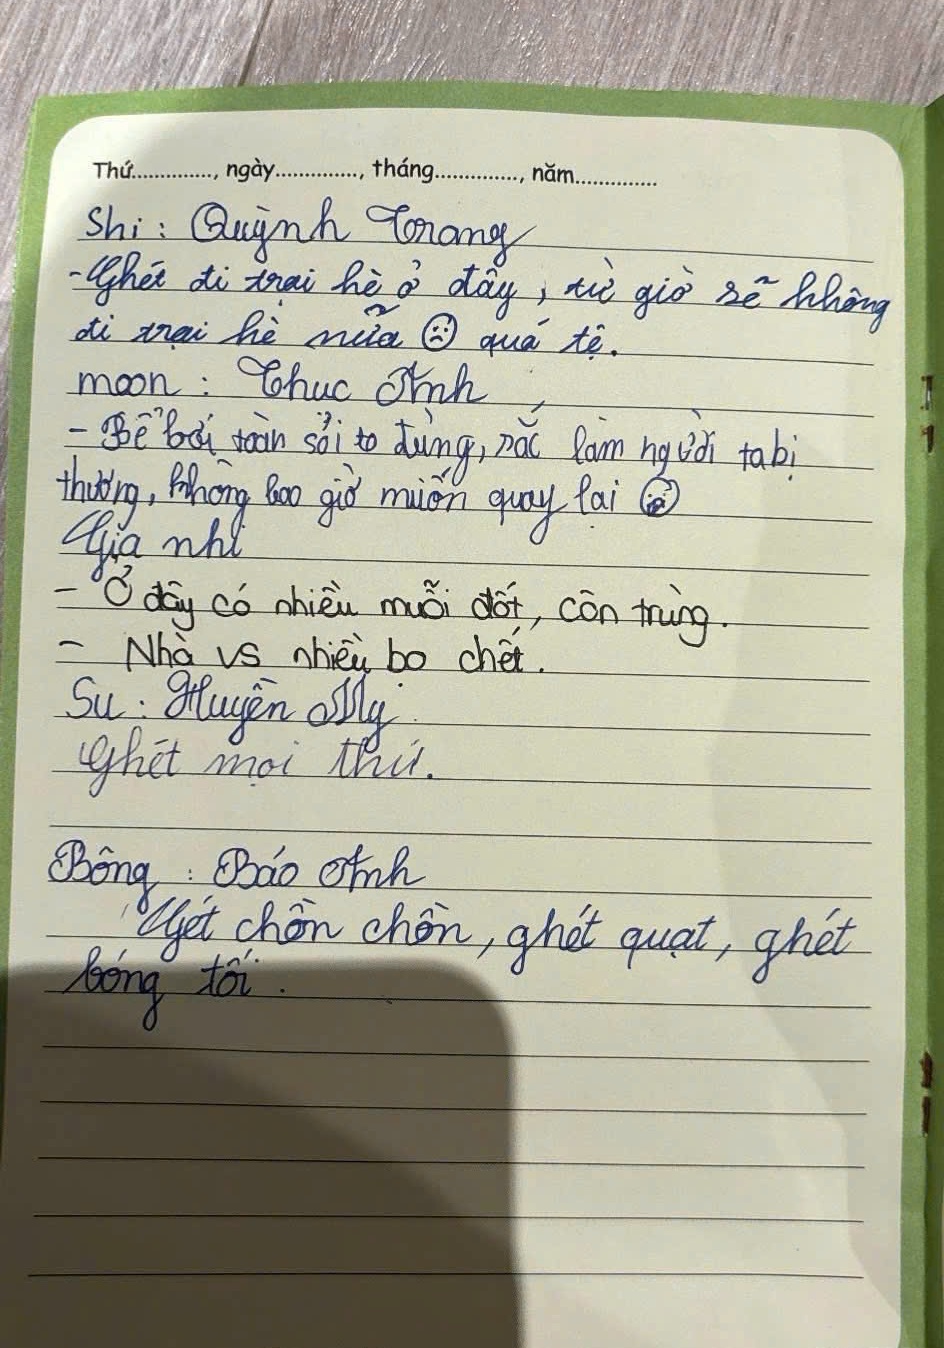 Thứ.............., ngày.............., tháng.............., năm..............
Shi: Quỳnh Trang
- Ghét đi trại hè ở đây, từ giờ sẽ không
đi trại hè nữa ☹ quá tệ.
moon: Thuc Anh
- Bể bơi toàn sỏi to đùng, rắc làm người ta bị
thương, không bao giờ muốn quay lại ☹
Gia nhi
- Ở đây có nhiều muỗi đốt, côn trùng.
- Nhà vs nhiều bo chết.
Su: Huyền My
Ghét mọi thứ.
Bông: Báo Anh
Gét chồn chồn, ghét quạt, ghét
bóng tối.